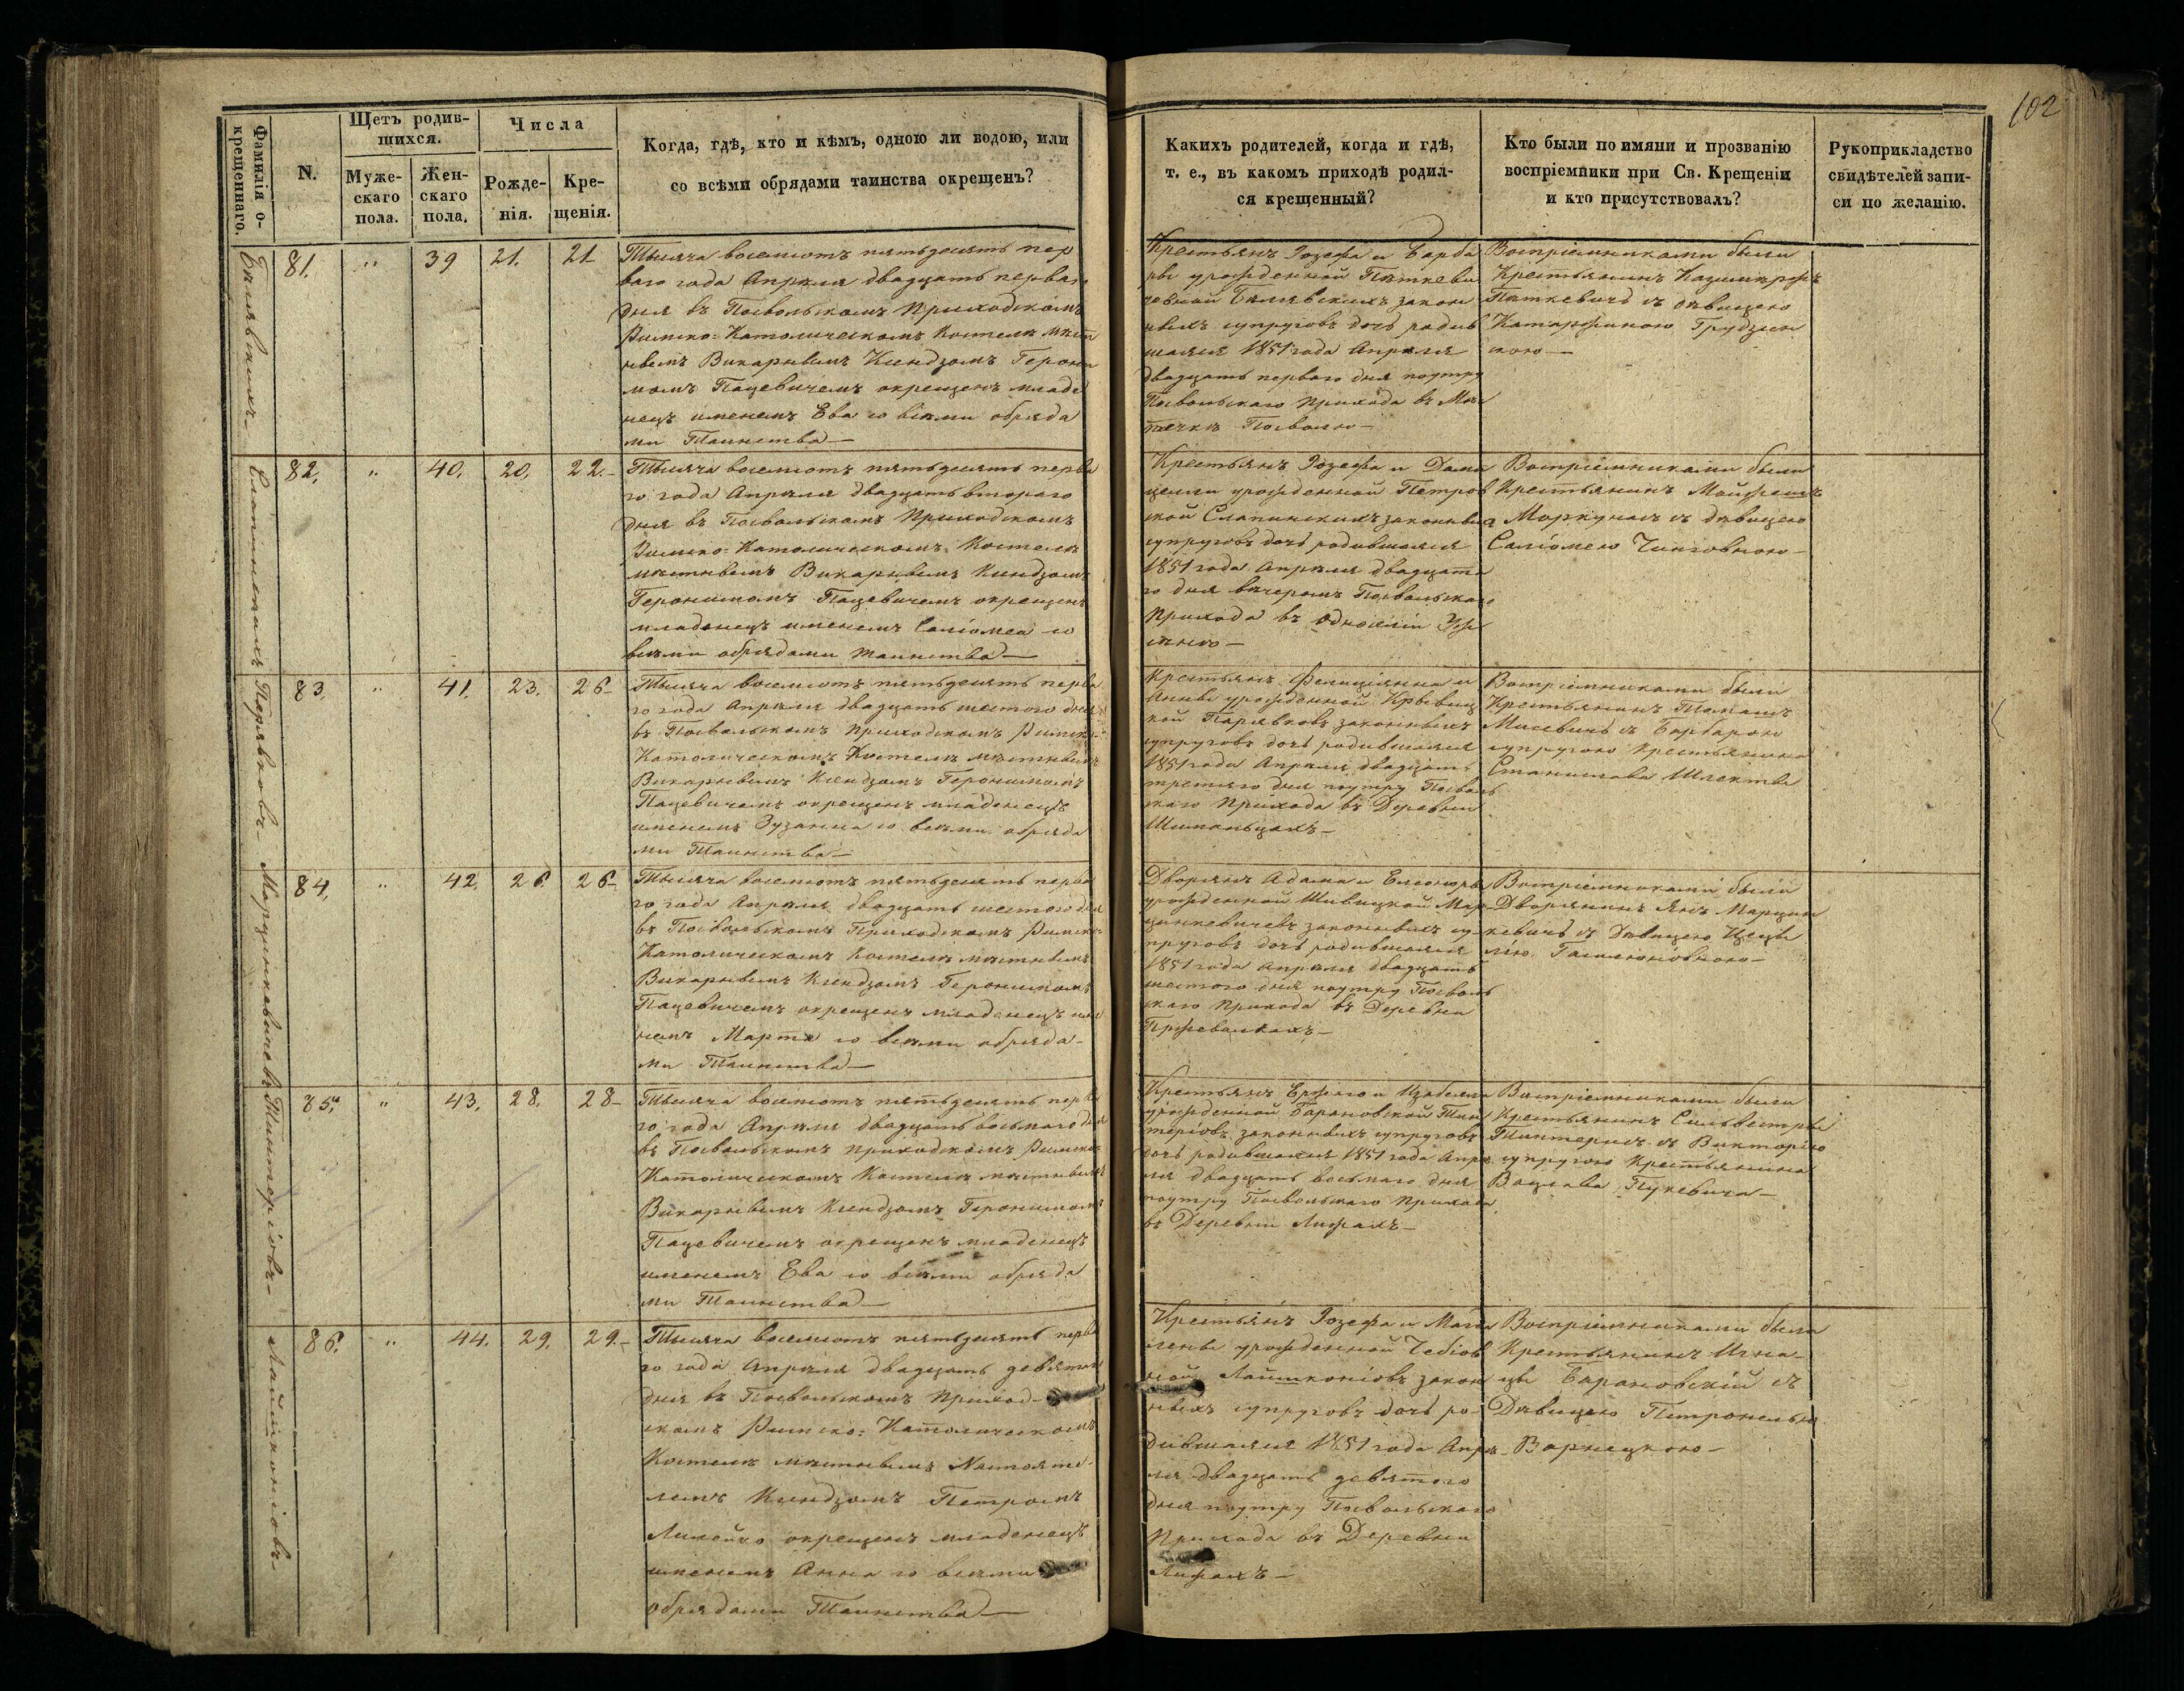 102
Фамилія о-
крещеннаго.
N.
Щетъ родив-
шихся.
Муже-
скаго
пола.
Жен-
скаго
пола.
Числа
Рожде-
нія.
Кре-
щенія.
Когда, гдѣ, кто и кѣмъ, одною ли водою, или
со всѣми обрядами таинства окрещенъ?
Какихъ родителей, когда и гдѣ,
т. е., въ какомъ приходѣ родил-
ся крещенный?
Кто были по имяни и прозванію
воспріемники при Св. Крещеніи
и кто присутствовалъ?
Рукоприкладство
свидѣтелей запи-
си по желанію.
81. " 39 21. 21
Тысяча восемсотъ пятьдесятъ пер
ваго года Апрѣля двадцать перваго
дня въ Посвольскомъ Приходскомъ
Римско: Католическомъ Костелѣ мѣст
нымъ Викарнымъ Ксендзомъ Герони
момъ Пацевичемъ окрещенъ младе
нецъ именемъ Ева со всѣми обряда
ми Таинства —
Крестьянъ Іозефа и Барба
ры урожденной Паткеви
човной законн
ныхъ супруговъ дочь родив
шаяся 1851 года Апрѣля
двадцать перваго дня поутру
Посвольскаго Прихода въ Мѣс
течкѣ Посволю —
Воспріемниками были
Крестьянинъ Казимиръ
Паткевичъ съ дѣвицею
Катаржиною Грудзин
скою —
82. " 40. 20. 22. -
Слапинскихъ
Тысяча восемсотъ пятьдесятъ перва
го года Апрѣля двадцать втораго
дня въ Посвольскомъ Приходскомъ
Римско: Католическомъ Костелѣ
мѣстнымъ Викарнымъ Ксендзомъ
Геронимомъ Пацевичемъ окрещенъ
младенецъ именемъ Саліомеа со
всѣми обрядами таинства —
Крестьянъ Іозефа и Доми
цели урожденной Петров
ской Слапинскихъ законныхъ
супруговъ дочь родившаяся
1851 года Апрѣля двадцата
го дня вечеромъ Посвольскаго
Прихода въ Односеліи
Воспріемниками были
Крестьянинъ
Моркунасъ съ дѣвицею
Саліомею Чинговною —
83. " 41. 23. 26 -
Тысяча восемсотъ пятьдесятъ перва
го года Апрѣля двадцать шестого дня
въ Посвольскомъ Приходскомъ Римско-
Католическомъ Костелѣ мѣстнымъ
Викарнымъ Ксендзомъ Геронимомъ
Пацевичемъ окрещенъ младенецъ
именемъ Зузанна со всѣми обряда
ми Таинства —
Крестьянъ Фелиціяна и
Анны урожденной
законныхъ
супруговъ дочь родившаяся
1851 года Апрѣля двадцать
третьяго дня поутру Посволь
скаго Прихода въ Деревни
Воспріемниками были
Крестьянинъ Томашъ
съ Барбарою
супругою Крестьянина
Станислава
84. " 42. 26. 26 -
Марцинкевичевъ
Тысяча восемсотъ пятьдесятъ перва
го года Апрѣля двадцать шестого дня
въ Посвольскомъ Приходскомъ Римско-
Католическомъ Костелѣ мѣстнымъ
Викарнымъ Ксендзомъ Геронимомъ
Пацевичемъ окрещенъ младенецъ име
немъ Марта со всѣми обряда-
ми Таинства —
Дворянъ Адама и Елеоноры
урожденной Шивицкой Мар-
цинкевичевъ законныхъ су-
пруговъ дочь родившаяся
1851 года Апрѣля двадцать
шестого дня поутру Посволь
скаго Прихода въ Деревни
Воспріемниками были
Дворянинъ Янъ Марцин
кевичъ съ Дѣвицею Цеци
лію
85. " 43. 28. 28 -
Тинтеріовъ —
Тысяча восемсотъ пятьдесятъ перва
го года Апрѣля двадцать восьмаго дня
въ Посвольскомъ Приходскомъ Римско-
Католическомъ Костелѣ мѣстнымъ
Викарнымъ Ксендзомъ Геронимомъ
Пацевичемъ окрещенъ младенецъ
именемъ Ева со всѣми обряда
ми Таинства —
Крестьянъ Ержего и Изабеллы
урожденной Барановской Тин
теріовъ законныхъ супруговъ
дочь родившаяся 1851 года Апрѣ
ля двадцать восьмаго дня
поутру Посвольскаго Прихода
въ Деревни Лифахъ —
Воспріемниками были
Крестьянинъ Сильвестръ
Тинтерисъ съ Викторіею
супругою Крестьянина
Вацлава Пукевича —
86. " 44. 29. 29. -
Лайшконіовъ —
Тысяча восемсотъ пятьдесятъ перва
го года Апрѣля двадцать девятаго
дня въ Посвольскомъ Приход-
скомъ Римско: Католическомъ
Костелѣ мѣстнымъ Настояте-
лемъ Ксендзомъ Петромъ
Лилейко окрещенъ младенецъ
именемъ Анна со всѣми
обрядами Таинства —
Крестьянъ Іозефа и Магда
лены урожденной Чебіов
ной Лайшконіовъ закон
ныхъ супруговъ дочь ро-
дившаяся 1851 года Апрѣ-
ля двадцать девятого
дня поутру Посвольскаго
Прихода въ Деревни
Лифахъ —
Воспріемниками были
Крестьянинъ Игна-
цы Барановскій съ
Дѣвицею Петронелею
Варнецкою —